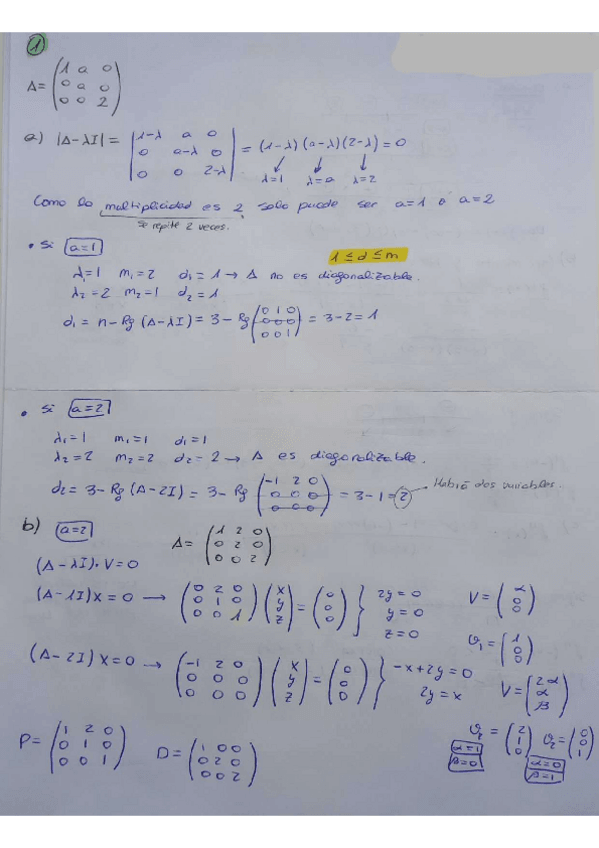 1
A = ( 1 a 0 / 0 a 0 / 0 0 2 )
a) |A-λI| = | 1-λ a 0 / 0 a-λ 0 / 0 0 2-λ | = (1-λ)(a-λ)(2-λ) = 0
λ=1 λ=a λ=2
Como la multiplicidad es 2 solo puede ser a=1 o a=2
se repite 2 veces.
• Si a=1
1 ≤ d ≤ m
λ₁=1 m₁=2 d₁=1 → A no es diagonalizable.
λ₂=2 m₂=1 d₂=1
d₁ = n - Rg (A-λI) = 3 - Rg ( 0 1 0 / 0 0 0 / 0 0 1 ) = 3-2 = 1
• Si a=2
λ₁=1 m₁=1 d₁=1
λ₂=2 m₂=2 d₂=2 → A es diagonalizable.
d₂ = 3 - Rg (A-2I) = 3 - Rg ( -1 2 0 / 0 0 0 / 0 0 0 ) = 3-1 = 2 Habrá dos variables.
b) a=2 A = ( 1 2 0 / 0 2 0 / 0 0 2 )
(A-λI)·V=0
(A-1I)X=0 → ( 0 2 0 / 0 1 0 / 0 0 1 ) ( x / y / z ) = ( 0 / 0 / 0 ) } 2y=0 y=0 z=0 V = ( α / 0 / 0 )
v₁ = ( 1 / 0 / 0 )
(A-2I)X=0 → ( -1 2 0 / 0 0 0 / 0 0 0 ) ( x / y / z ) = ( 0 / 0 / 0 ) } -x+2y=0 2y=x V = ( 2α / α / β )
P = ( 1 2 0 / 0 1 0 / 0 0 1 ) D = ( 1 0 0 / 0 2 0 / 0 0 2 ) v₂ = ( 2 / 1 / 0 ) v₂ = ( 0 / 0 / 1 )
α=1 β=0 α=0 β=1